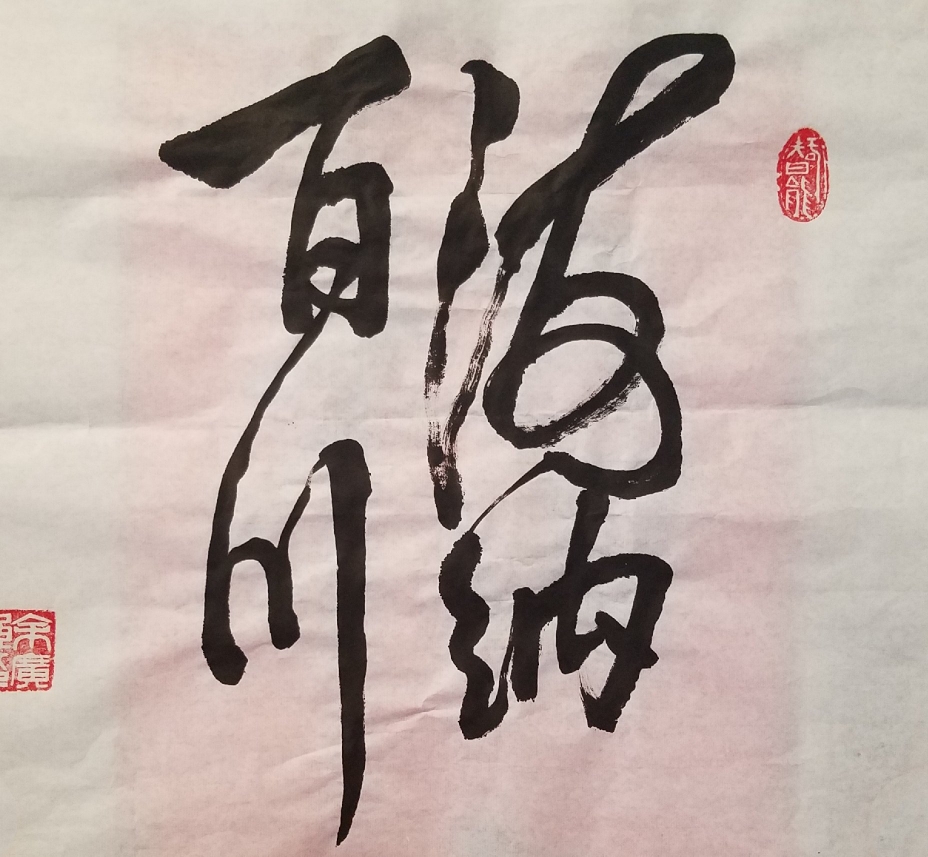 海纳
百川
余廣